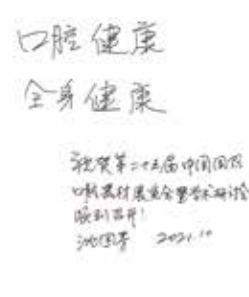 口腔健康
全身健康
祝贺第二十五届中国国际
口腔器材展览会暨学术研讨会
顺利召开!
2021.10